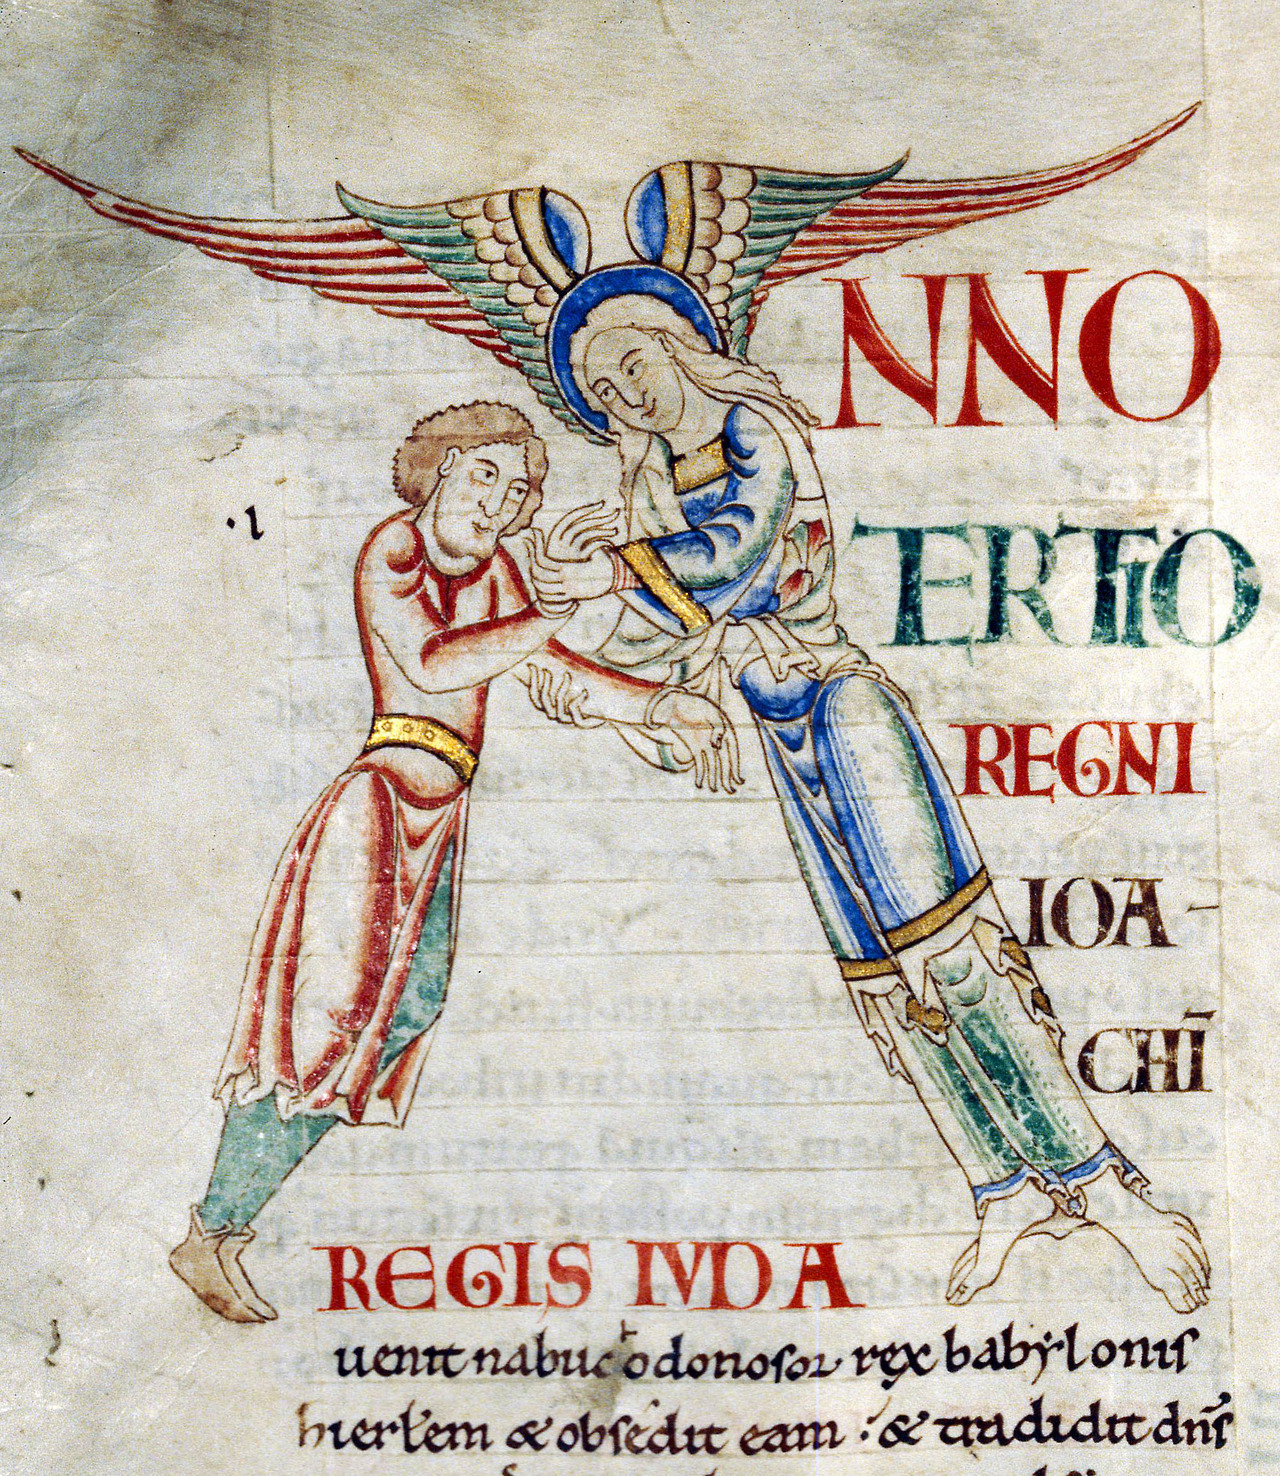 ·I
NNO
TERTIO
REGNI
IOA-
CHĪ
REGIS IVDA
uenit nabuc odonosor rex babẏlonis
hierłem & obsedit eam : & tradidit dn̄s